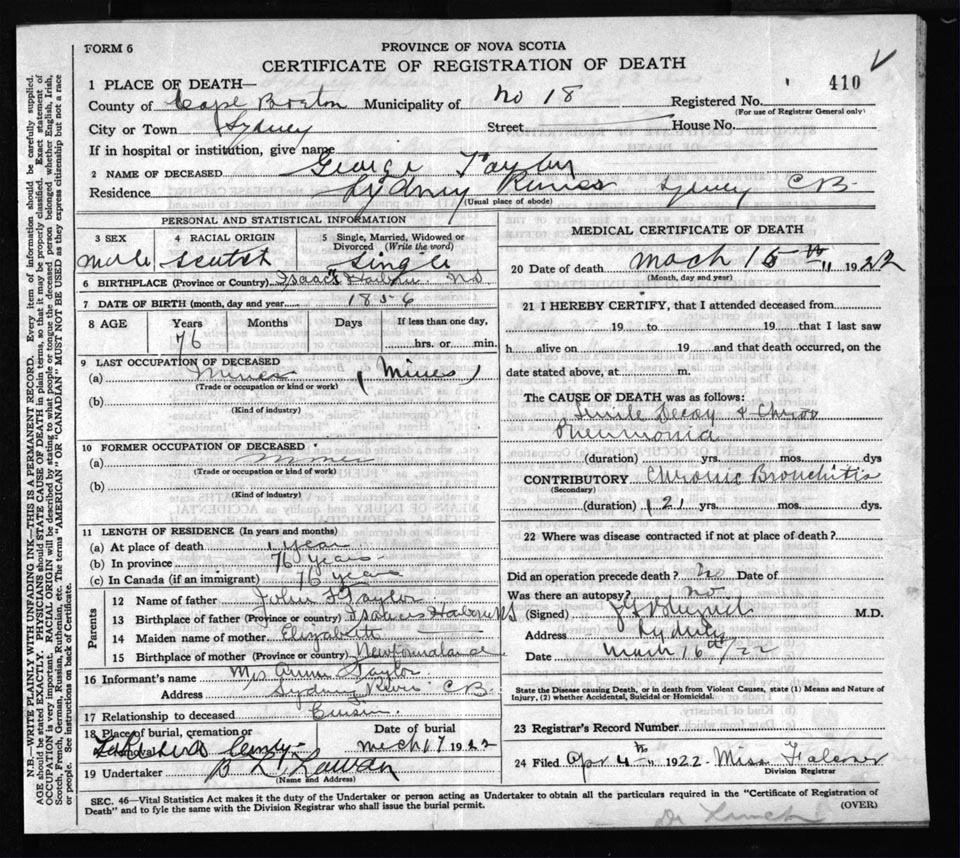 FORM 6
PROVINCE OF NOVA SCOTIA
CERTIFICATE OF REGISTRATION OF DEATH
410
1 PLACE OF DEATH—
County of Cape Breton Municipality of No 18 Registered No.
(For use of Registrar General only)
City or Town Sydney Street House No.
If in hospital or institution, give name
2 NAME OF DECEASED George Taylor
Residence Sydney River Sydney C B
(Usual place of abode)
PERSONAL AND STATISTICAL INFORMATION
3 SEX male
4 RACIAL ORIGIN Scotch
5 Single, Married, Widowed or Divorced (Write the word) Single
6 BIRTHPLACE (Province or Country) Isaac's Harbour N S
7 DATE OF BIRTH (month, day and year) 1856
8 AGE Years Months Days If less than one day,
76 hrs. or min.
9 LAST OCCUPATION OF DECEASED
(a) Miner (Mines)
(Trade or occupation or kind or work)
(b)
(Kind of industry)
10 FORMER OCCUPATION OF DECEASED
(a) Miner
(Trade or occupation or kind of work)
(b)
(Kind of industry)
11 LENGTH OF RESIDENCE (In years and months)
(a) At place of death 1 year
(b) In province 76 years
(c) In Canada (if an immigrant) 76 years
Parents
12 Name of father John Taylor
13 Birthplace of father (Province or country) NS
14 Maiden name of mother Elizabeth
15 Birthplace of mother (Province or country) Newfoundland
16 Informant's name Mrs Taylor
Address Sydney River C B
17 Relationship to deceased Cousin
18 Place of burial, cremation or removal Date of burial
Cemty March 17 1922
19 Undertaker
(Name and Address)
MEDICAL CERTIFICATE OF DEATH
20 Date of death March 16th 1922
(Month, day and year)
21 I HEREBY CERTIFY, that I attended deceased from
19 to 19 that I last saw
h alive on 19 and that death occurred, on the
date stated above, at m.
The CAUSE OF DEATH was as follows:
Senile Decay &
Pneumonia
(duration) yrs. mos. dys
CONTRIBUTORY Chronic Bronchitis
(Secondary)
(duration) yrs. mos. dys.
22 Where was disease contracted if not at place of death?
Did an operation precede death? No Date of
Was there an autopsy? No
(Signed) M.D.
Address Sydney
Date March 16th/22
State the Disease causing Death, or in death from Violent Causes, state (1) Means and Nature of
Injury, (2) whether Accidental, Suicidal or Homicidal.
23 Registrar's Record Number
24 Filed Apr 4th 1922 Miss Falconer
Division Registrar
SEC. 46—Vital Statistics Act makes it the duty of the Undertaker or person acting as Undertaker to obtain all the particulars required in the "Certificate of Registration of
Death" and to fyle the same with the Division Registrar who shall issue the burial permit. (OVER)
Dr Lynch
N.B.—WRITE PLAINLY WITH UNFADING INK—THIS IS A PERMANENT RECORD. Every item of information should be carefully supplied.
AGE should be stated EXACTLY. PHYSICIANS should STATE CAUSE OF DEATH in plain terms, so that it may be properly classified. Exact statement of
OCCUPATION is very important. RACIAL ORIGIN will be described by stating to what people or tongue the deceased person belonged whether English, Irish,
Scotch, French, German, Russian, Ruthenian, etc. The terms "AMERICAN" OR "CANADIAN" MUST NOT BE USED as they express citizenship but not a race
or people. See instructions on back of Certificate.